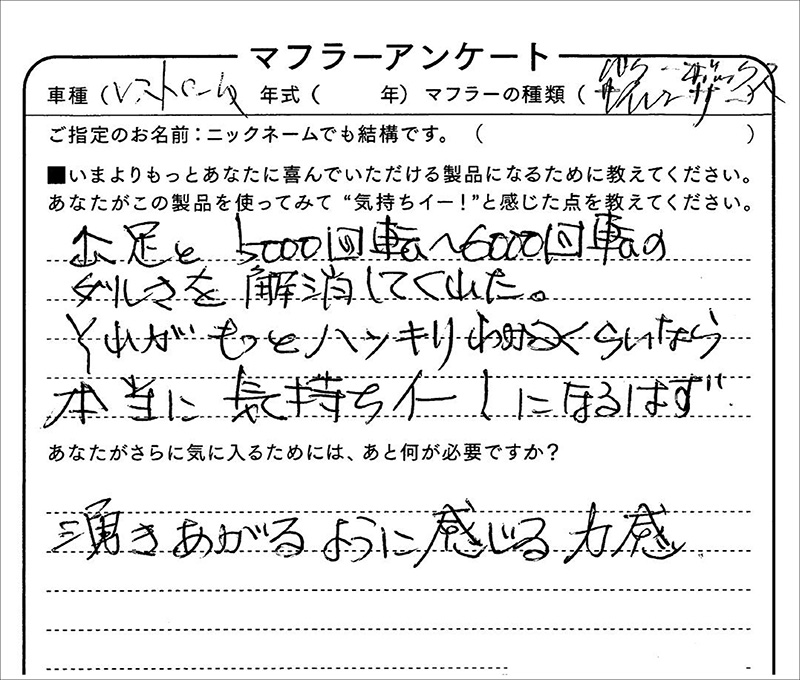 マフラーアンケート
車種（Vストローム 年式（　　年）マフラーの種類（
ご指定のお名前：ニックネームでも結構です。（　　　）
■いまよりもっとあなたに喜んでいただける製品になるために教えてください。
あなたがこの製品を使ってみて“気持ちイー！”と感じた点を教えてください。
出足と 5000回転〜6000回転の
ダルさを 解消してくれた。
それが もっとハッキリ わかるくらいなら
本当に 気持ちイー！になるはず
あなたがさらに気に入るためには、あと何が必要ですか？
湧きあがる ように 感じる 力感